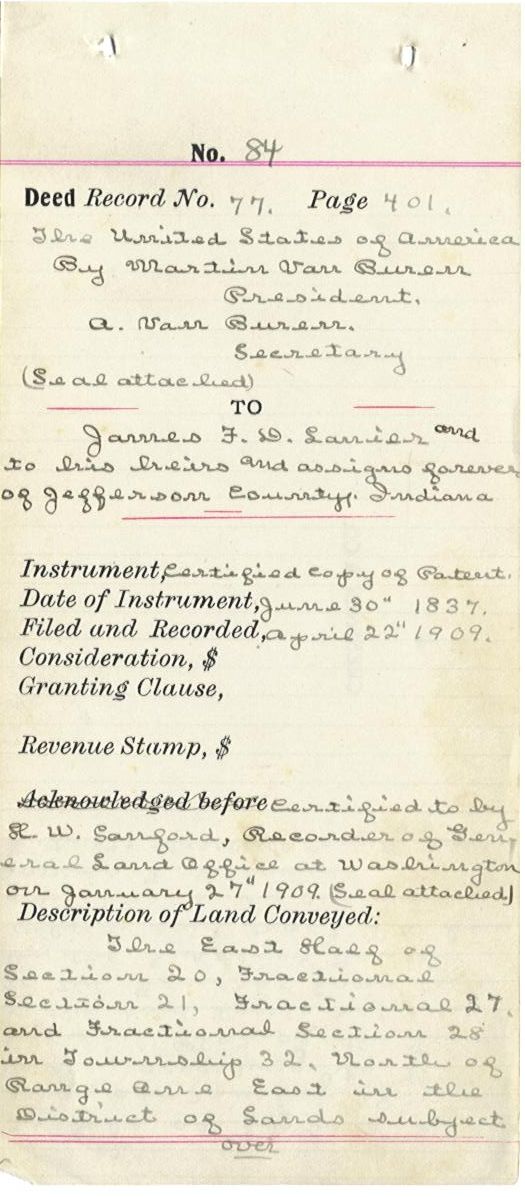 No. 84
Deed Record No. 77. Page 401.
The United States of America
By Martin Van Buren
President.
A. Van Buren.
Secretary
(Seal attached)
TO
James F. D. Lanier and
to his heirs and assigns forever
of Jefferson County, Indiana
Instrument, Certified copy of Patent.
Date of Instrument, June 30" 1837.
Filed and Recorded, April 22" 1909.
Consideration, $
Granting Clause,
Revenue Stamp, $
Acknowledged before Certified to by
H. W. Sanford, Recorder of Gen-
eral Land Office at Washington
on January 27" 1909. (Seal attached)
Description of Land Conveyed:
The East Half of
Section 20, Fractional
Section 21, Fractional 27,
and Fractional Section 28
in Township 32, North of
Range One East in the
District of Lands subject
over